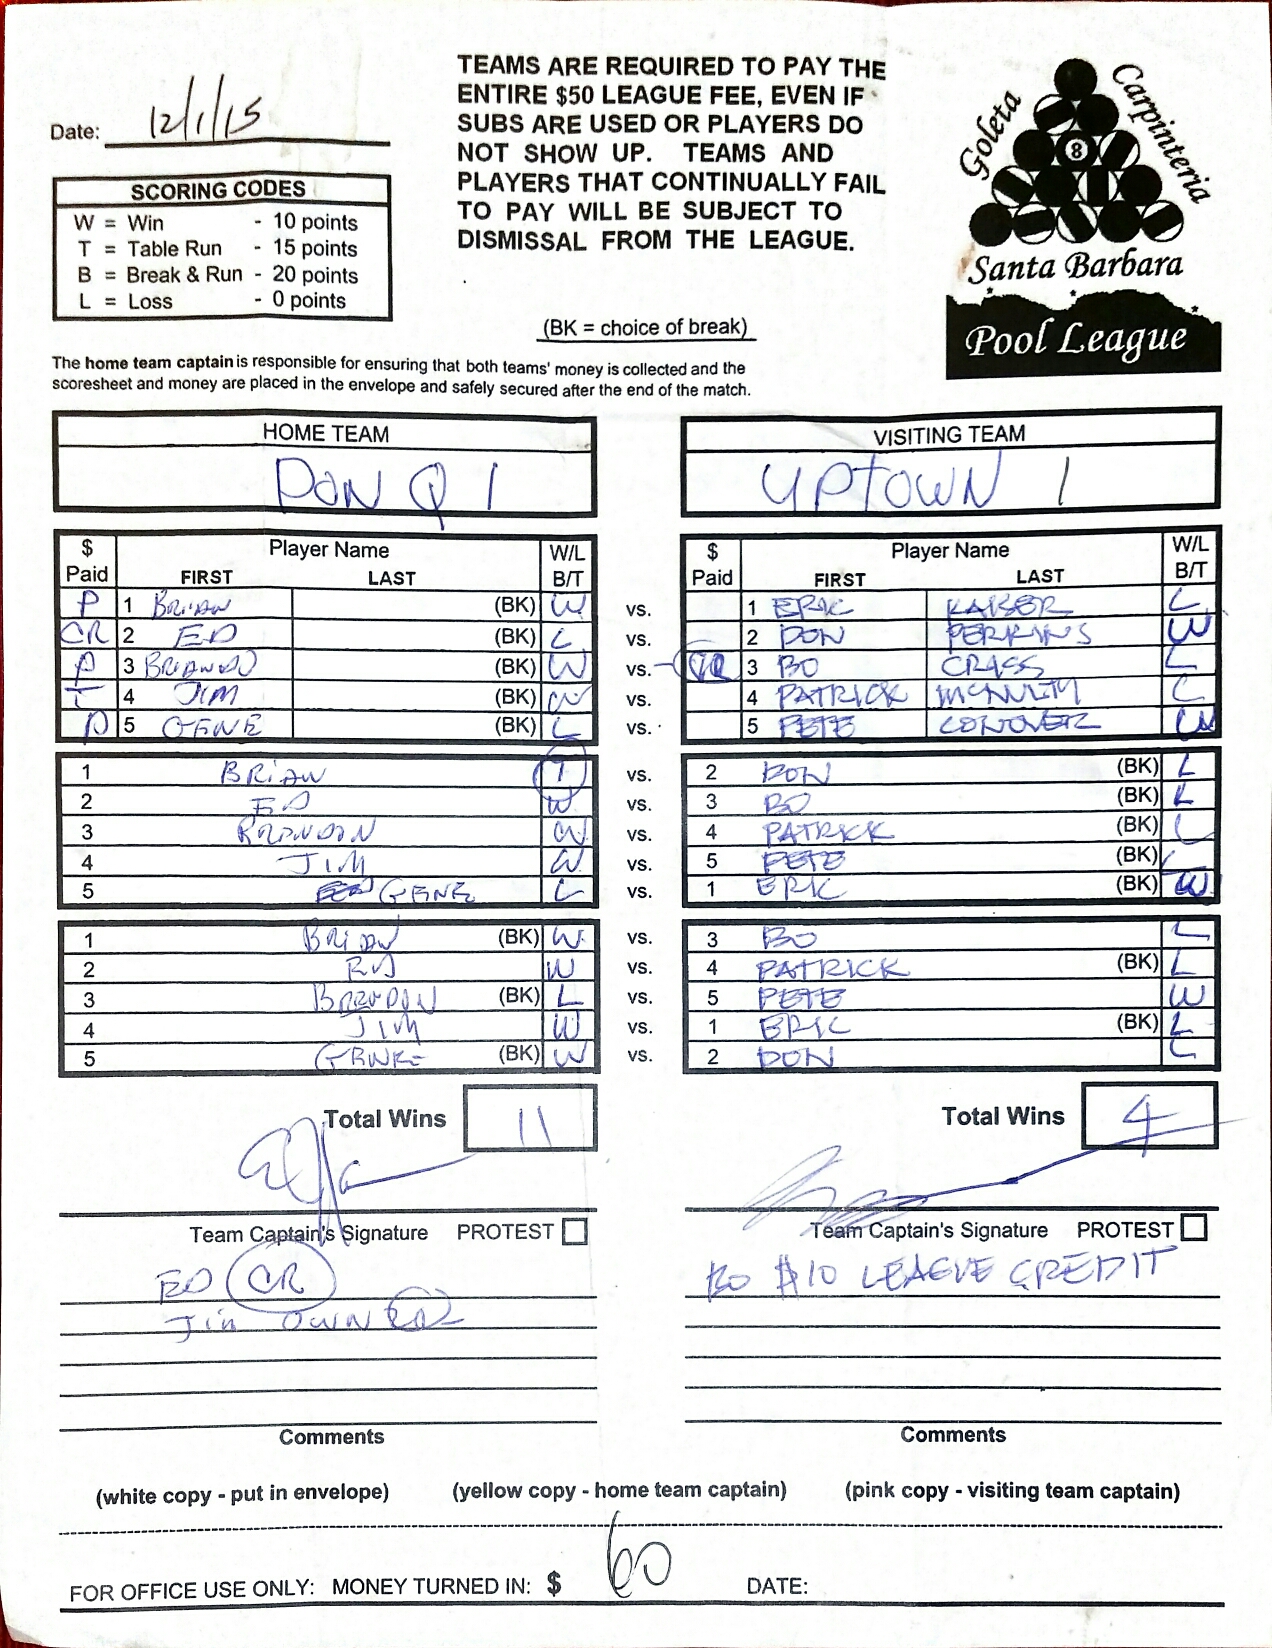 Date: 12/1/15
TEAMS ARE REQUIRED TO PAY THE
ENTIRE $50 LEAGUE FEE, EVEN IF
SUBS ARE USED OR PLAYERS DO
NOT SHOW UP. TEAMS AND
PLAYERS THAT CONTINUALLY FAIL
TO PAY WILL BE SUBJECT TO
DISMISSAL FROM THE LEAGUE.
Goleta
Carpinteria
8
Santa Barbara
Pool League
SCORING CODES
W = Win - 10 points
T = Table Run - 15 points
B = Break & Run - 20 points
L = Loss - 0 points
(BK = choice of break)
The home team captain is responsible for ensuring that both teams' money is collected and the
scoresheet and money are placed in the envelope and safely secured after the end of the match.
HOME TEAM
DON Q 1
VISITING TEAM
UPTOWN 1
$ Paid Player Name FIRST LAST W/L B/T
$ Paid Player Name FIRST LAST W/L B/T
P 1 BRIAN (BK) W vs. 1 ERIC KAISER L
CR 2 ED (BK) L vs. 2 DON PERKINS W
P 3 BRANDON (BK) W vs. CR 3 BO CRASS L
4 JIM (BK) W vs. 4 PATRICK MCNULTY L
P 5 GENE (BK) L vs. 5 PETE CONOVER W
1 BRIAN T vs. 2 DON (BK) L
2 ED W vs. 3 BO (BK) L
3 BRANDON W vs. 4 PATRICK (BK) L
4 JIM W vs. 5 PETE (BK) L
5 GENE L vs. 1 ERIC (BK) W
1 BRIAN (BK) W vs. 3 BO L
2 W vs. 4 PATRICK (BK) L
3 BRENDON (BK) L vs. 5 PETE W
4 JIM W vs. 1 ERIC (BK) L
5 (BK) W vs. 2 DON L
Total Wins 11
Total Wins 4
Team Captain's Signature PROTEST
Team Captain's Signature PROTEST
ED CR
JIM OWNER
BO $10 LEAGUE CREDIT
Comments
Comments
(white copy - put in envelope) (yellow copy - home team captain) (pink copy - visiting team captain)
FOR OFFICE USE ONLY: MONEY TURNED IN: $ 60 DATE: